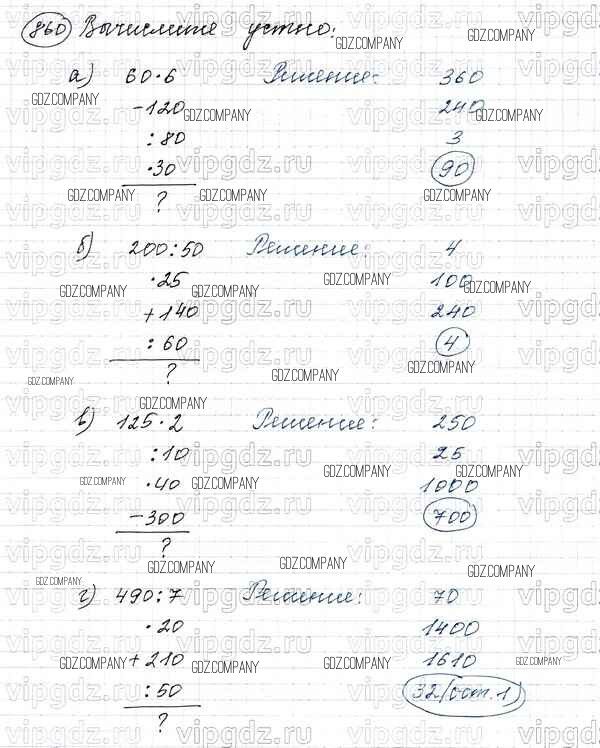 860 Вычислите устно:
а) 60·6 Решение: 360
-120 240
:80 3
·30 90
?
б) 200:50 Решение: 4
·25 100
+140 240
:60 4
?
в) 125·2 Решение: 250
:10 25
·40 1000
-300 700
?
г) 490:7 Решение: 70
·20 1400
+210 1610
:50 32(ост.1)
?